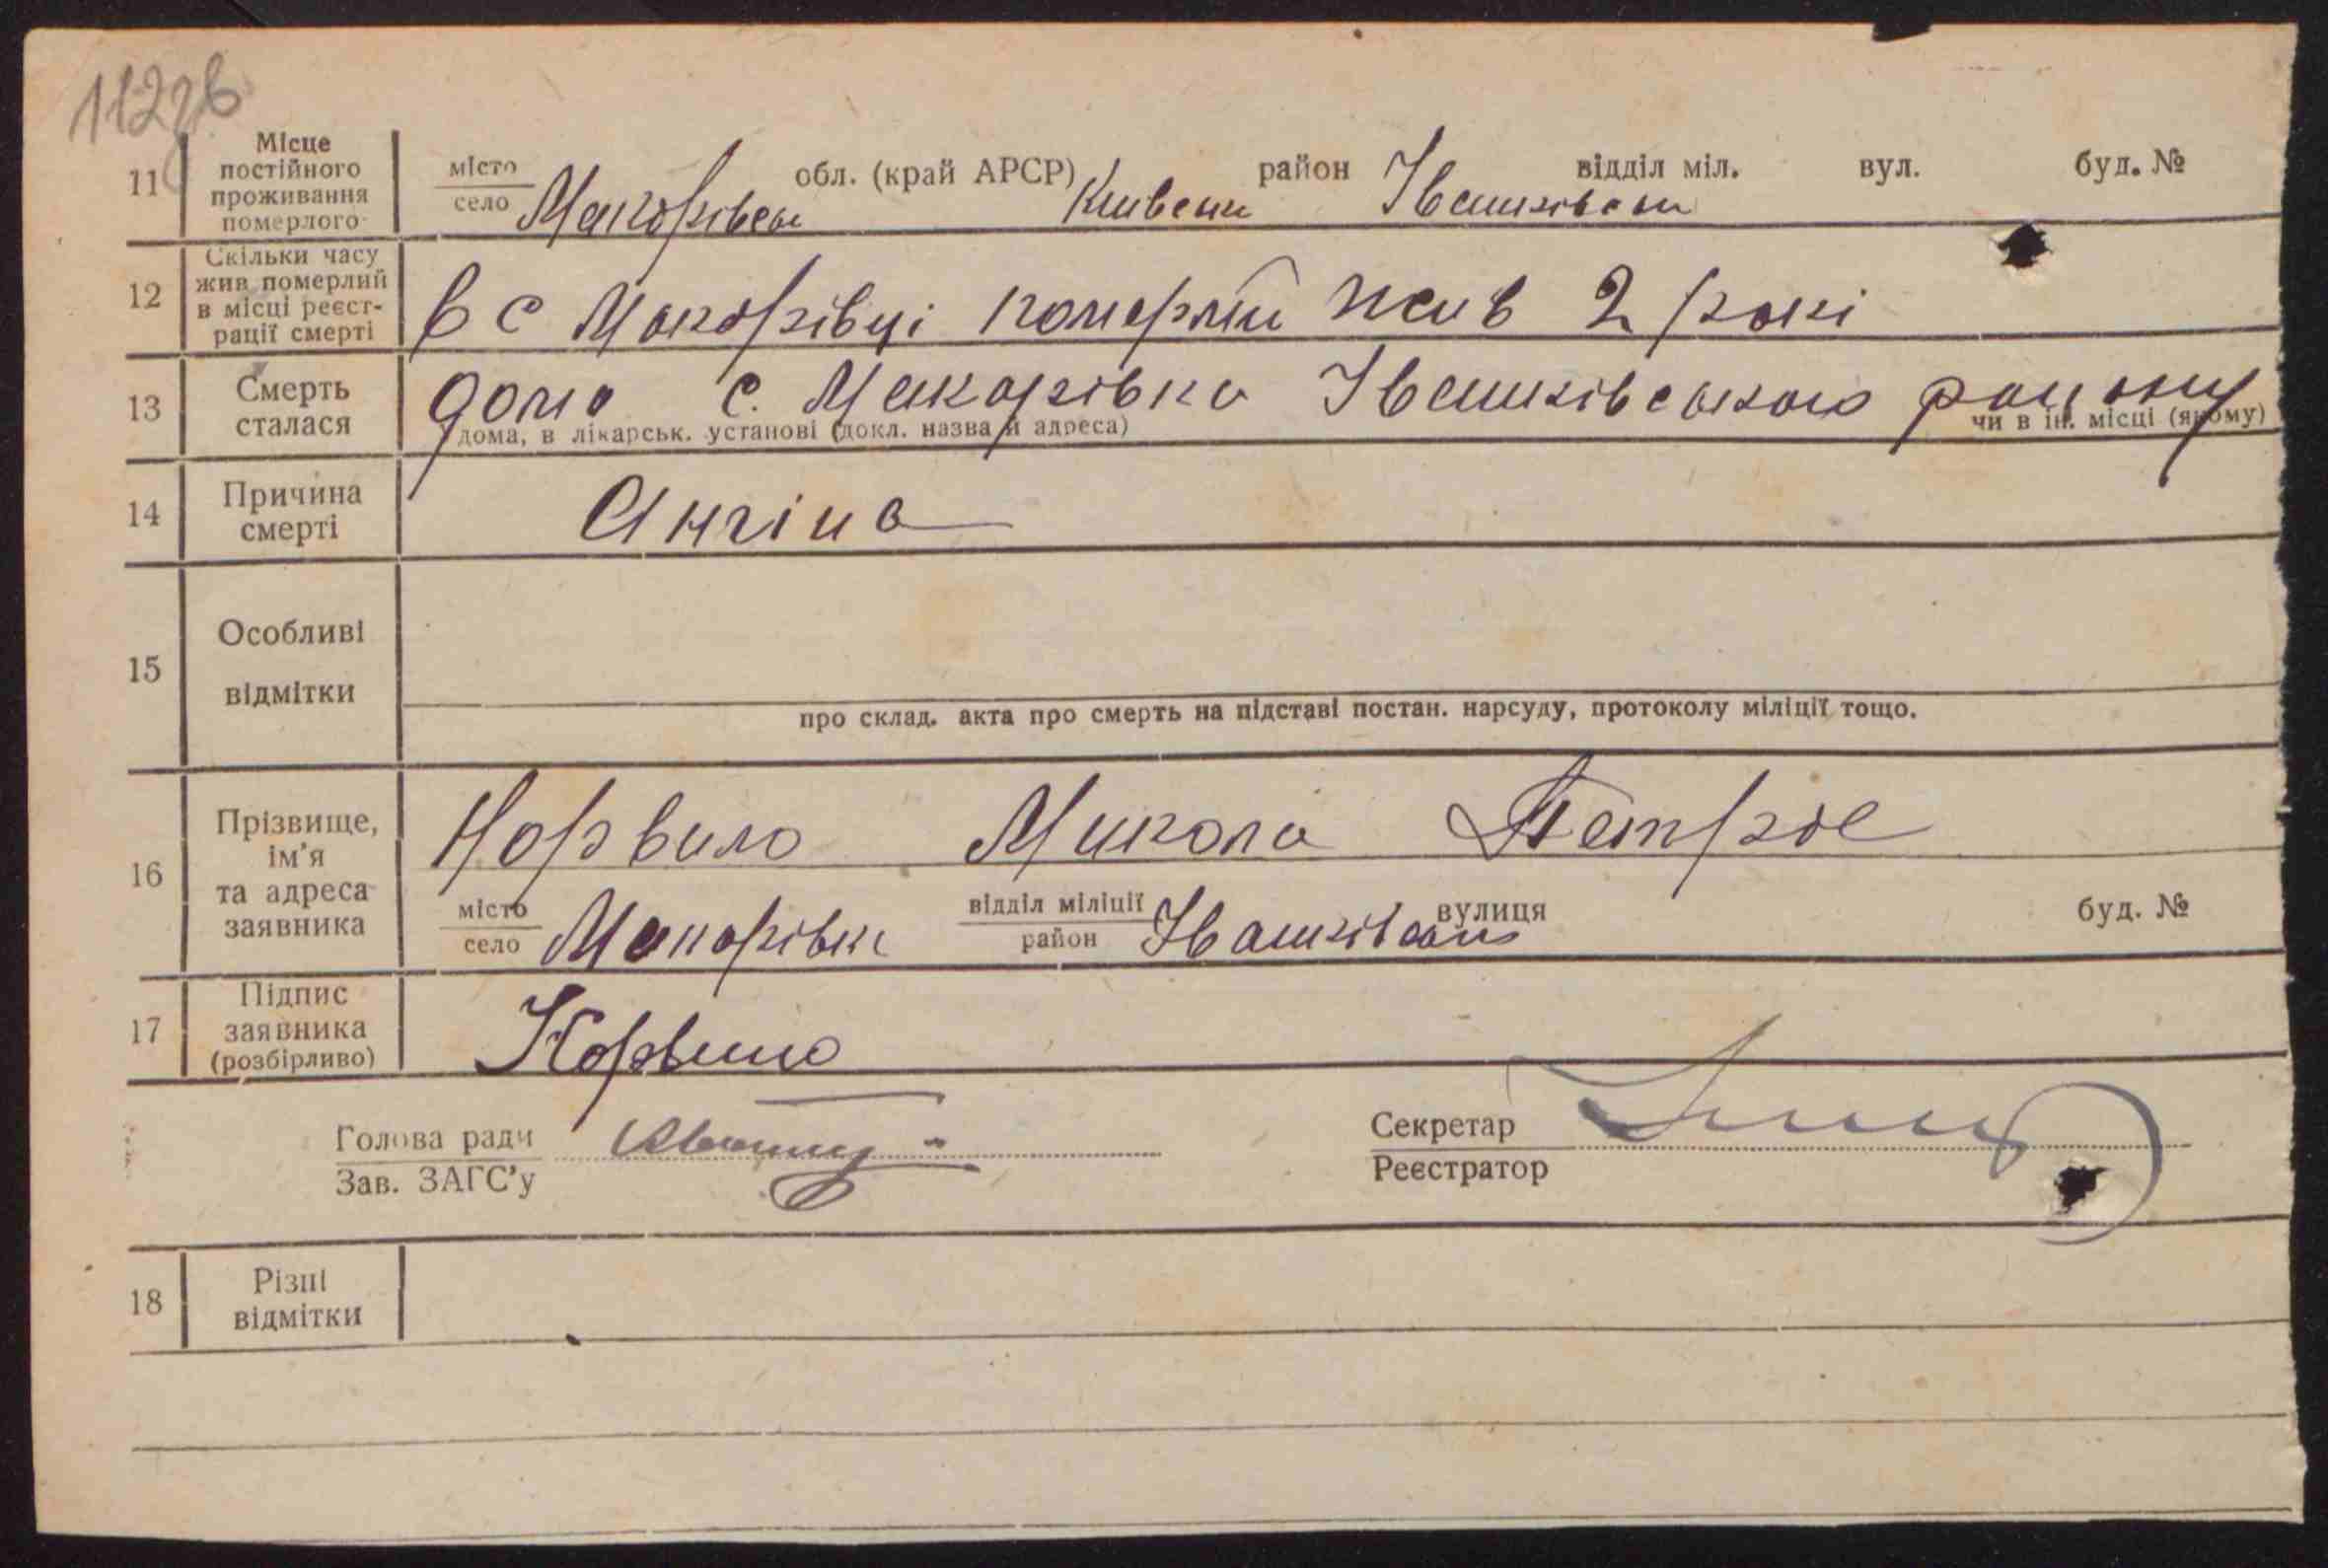 112зв
11 Місце постійного проживання померлого
місто село Макорівськ обл. (край АРСР) Київськ район Іванківськ відділ міл. вул. буд. №
12 Скільки часу жив померлий в місці реєстрації смерті
в с Макорівці померлий жив 2 рокі
13 Смерть сталася
дома с. Макарівка Іванківського району
дома, в лікарськ. установі (докл. назва й адреса) чи в ін. місці (якому)
14 Причина смерті
Ангіна
15 Особливі відмітки
про склад. акта про смерть на підставі постан. нарсуду, протоколу міліції тощо.
16 Прізвище, ім'я та адреса заявника
Корвило Микола Петров
місто село Макорівка відділ міліції район Іванківськ вулиця буд. №
17 Підпис заявника (розбірливо)
Корвило
Голова ради
Зав. ЗАГС'у
Секретар
Реєстратор
18 Різні відмітки